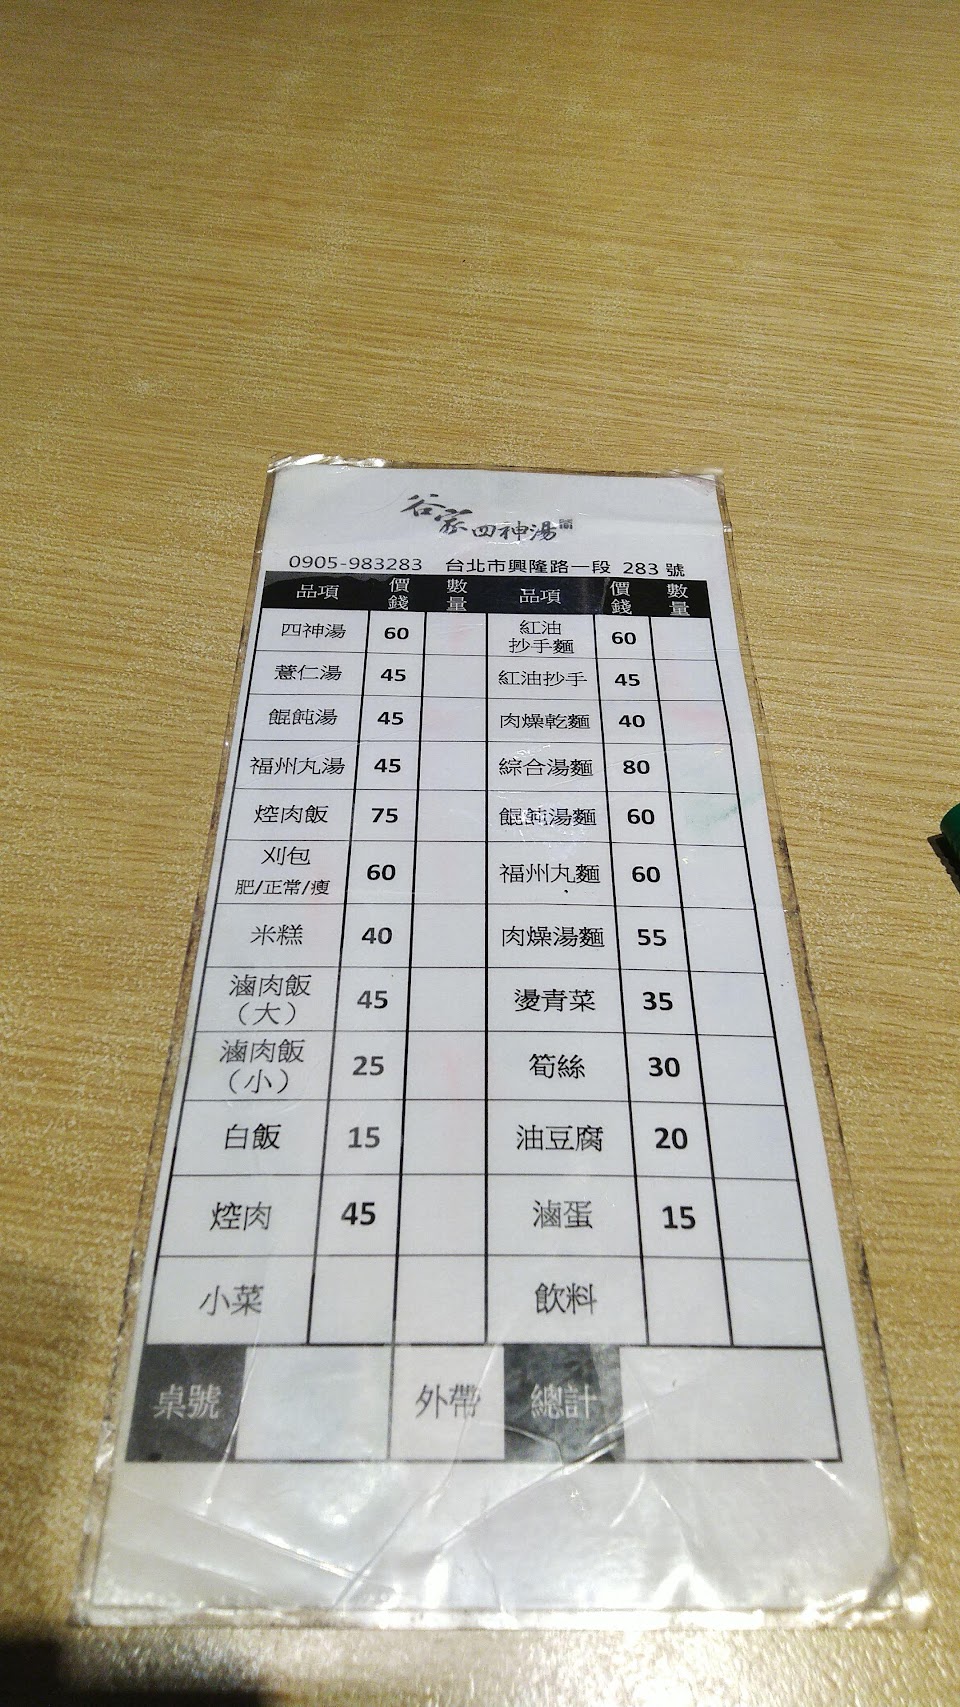 谷家四神湯
0905-983283 台北市興隆路一段 283 號
品項 價錢 數量 品項 價錢 數量
四神湯 60 紅油抄手麵 60
薏仁湯 45 紅油抄手 45
餛飩湯 45 肉燥乾麵 40
福州丸湯 45 綜合湯麵 80
焢肉飯 75 餛飩湯麵 60
刈包 肥/正常/瘦 60 福州丸麵 60
米糕 40 肉燥湯麵 55
滷肉飯（大） 45 燙青菜 35
滷肉飯（小） 25 筍絲 30
白飯 15 油豆腐 20
焢肉 45 滷蛋 15
小菜 飲料
桌號 外帶 總計